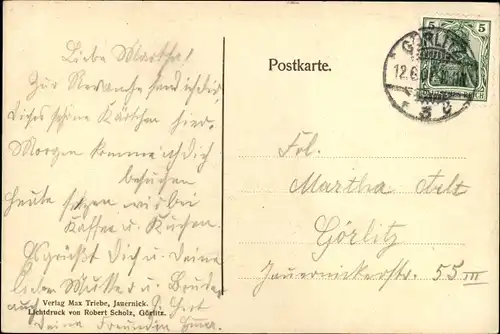 Liebe Martha!
Zur Revanche sende ich dir
dieses schöne Kärtchen hier.
Morgen komme ich dich
besuchen
heute sitzen wir bei
Kaffee u. Kuchen.
Es grüßt Dich u. Deine
liebe Mutter u. Bruder
auch
Deine Freundin
Verlag Max Triebe, Jauernick.
Lichtdruck von Robert Scholz, Görlitz.
Postkarte.
5 5
GÖRLITZ
12.6.
3
Frl.
Martha
Görlitz
Jauernickerstr. 55 III